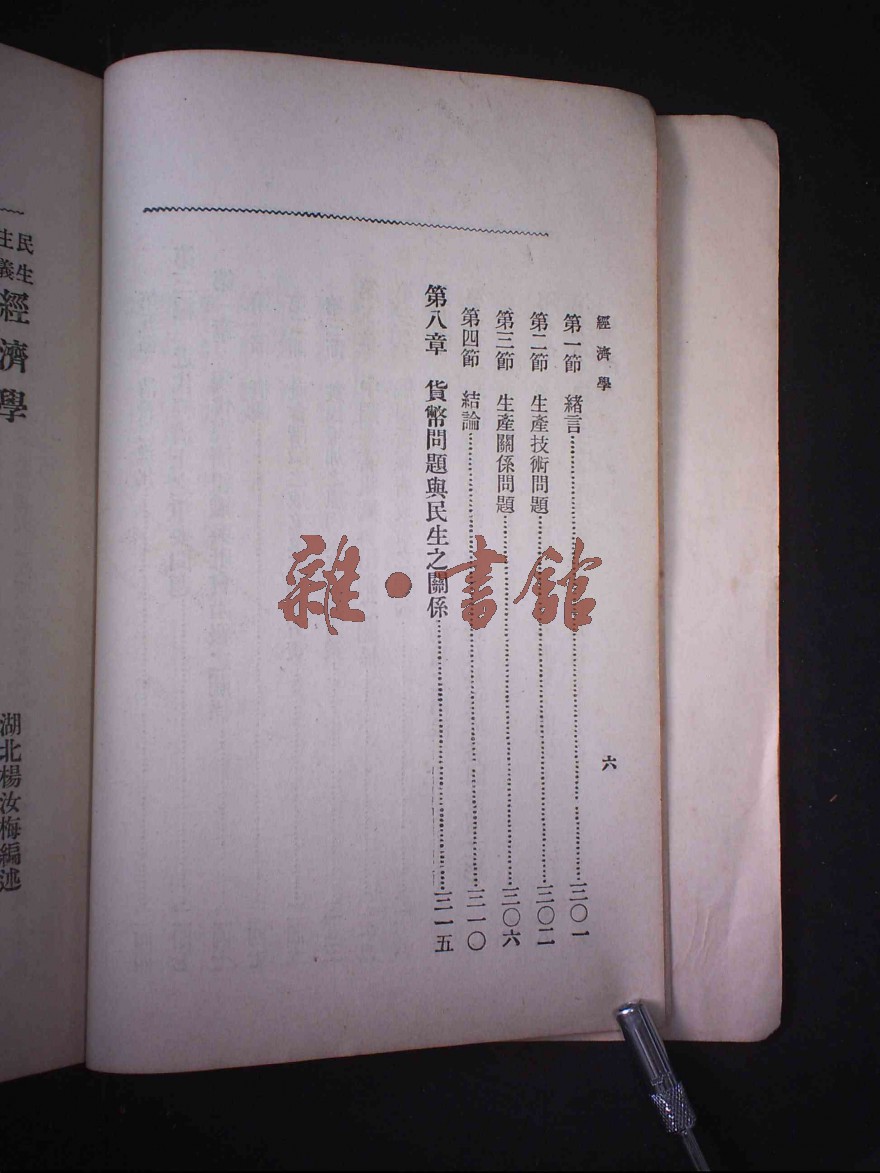 經濟學
六
第一節　緒言……三〇一
第二節　生產技術問題……三〇二
第三節　生產關係問題……三〇六
第四節　結論……三一〇
第八章　貨幣問題與民生之關係……三一五
民生主義經濟學
湖北楊汝梅編述
雜·書館